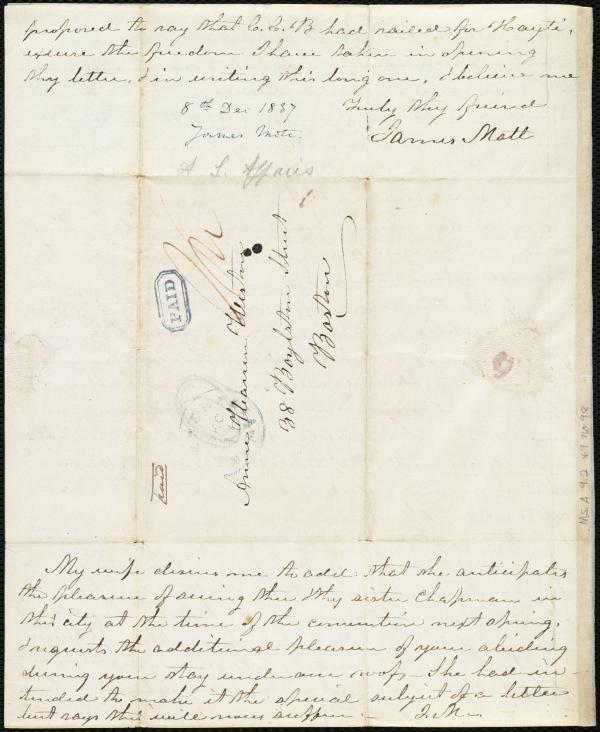 proposed to say that C. C. B had sailed for Hayti,
excuse the freedom I have taken in opening
thy letter, & in writing this long one, & believe me
truly thy friend
James Mott
8th Dec 1837
James Mott.
A. S. Affairs
PAID
Anne Warren Weston
38 Boylston Street
Boston
paid
MS. A. 9.2 v.9 no 98
My wife desires me to add that she anticipates
the pleasure of seeing thee & thy sister Chapman in
this city at the time of the convention next spring,
& requests the additional pleasure of your abiding
during your stay under our roof. She had in-
tended to make it the special subject of a letter
but says this will now suffice. J. M.